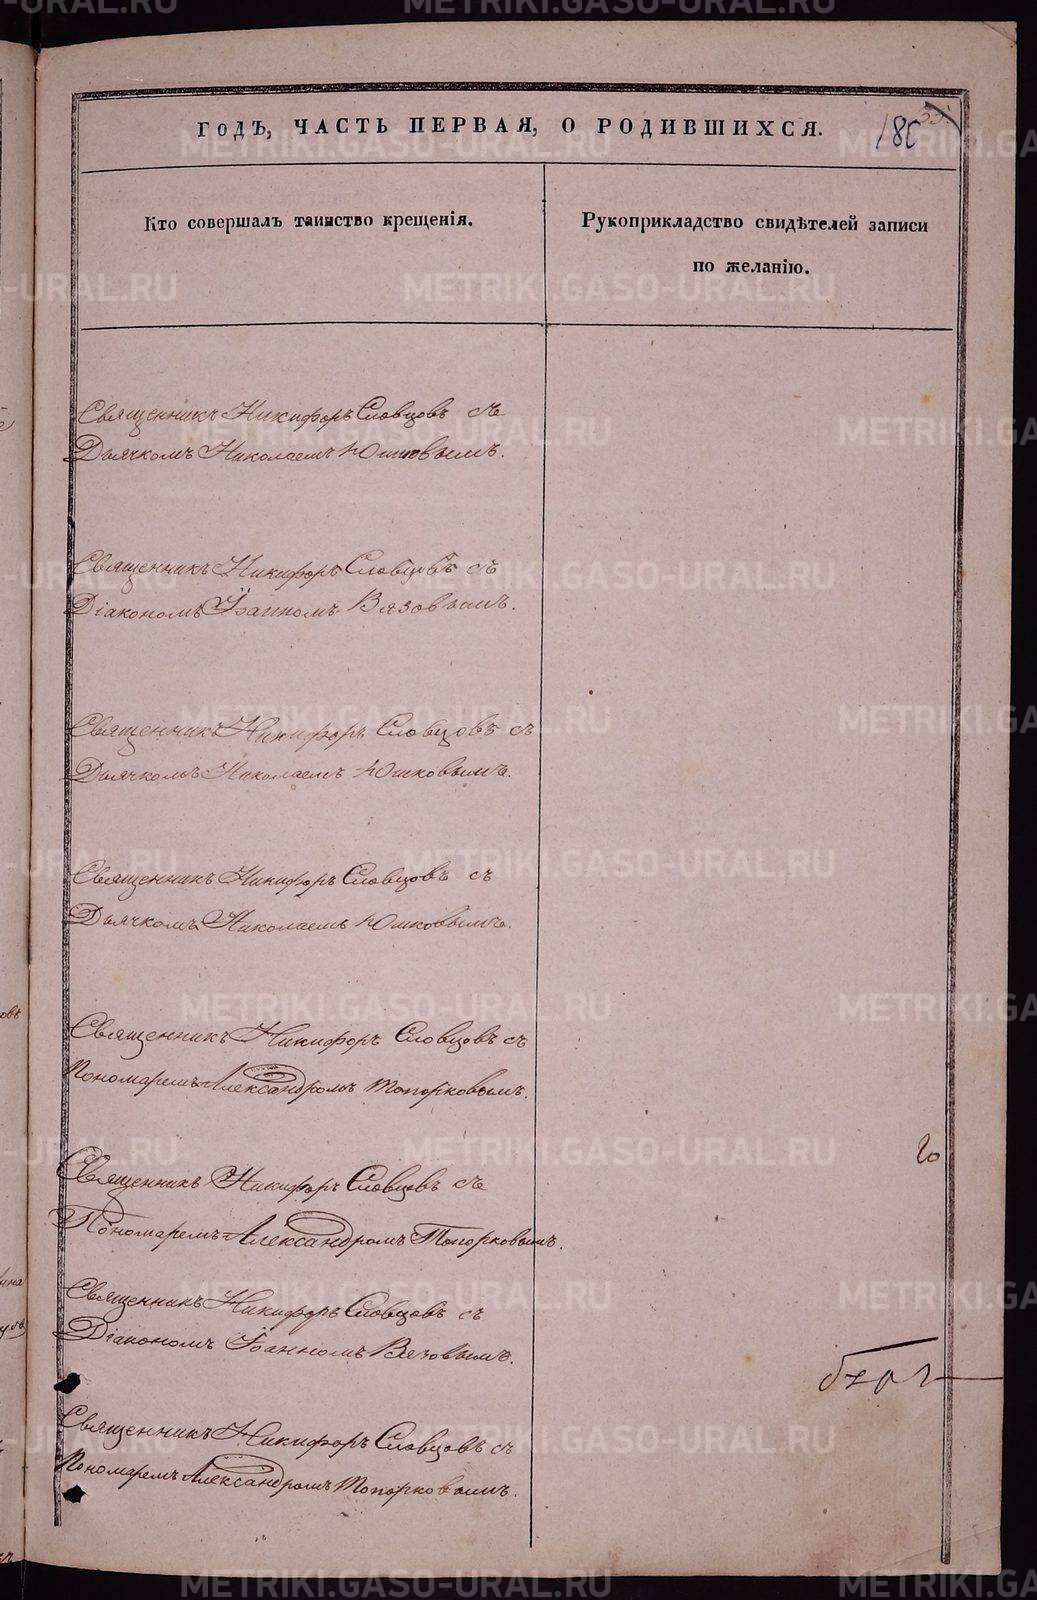 ГОДЪ, ЧАСТЬ ПЕРВАЯ, О РОДИВШИХСЯ.
180
Кто совершалъ таинство крещенія.
Рукоприкладство свидѣтелей записи
по желанію.
Священникъ Никифоръ Словцовъ съ
Дьячкомъ Николаемъ Юшковымъ.
Священникъ Никифоръ Словцовъ съ
Діакономъ Іоанномъ Вязовымъ.
Священникъ Никифоръ Словцовъ съ
Дьячкомъ Николаемъ Юшковымъ.
Священникъ Никифоръ Словцовъ съ
Дьячкомъ Николаемъ Юшковымъ.
Священникъ Никифоръ Словцовъ съ
Пономаремъ Александромъ Топорковымъ.
Священникъ Никифоръ Словцовъ съ
Пономаремъ Александромъ Топорковымъ.
Священникъ Никифоръ Словцовъ съ
Діакономъ Іоанномъ Вязовымъ.
Священникъ Никифоръ Словцовъ съ
Пономаремъ Александромъ Топорковымъ.
METRIKI.GASO-URAL.RU